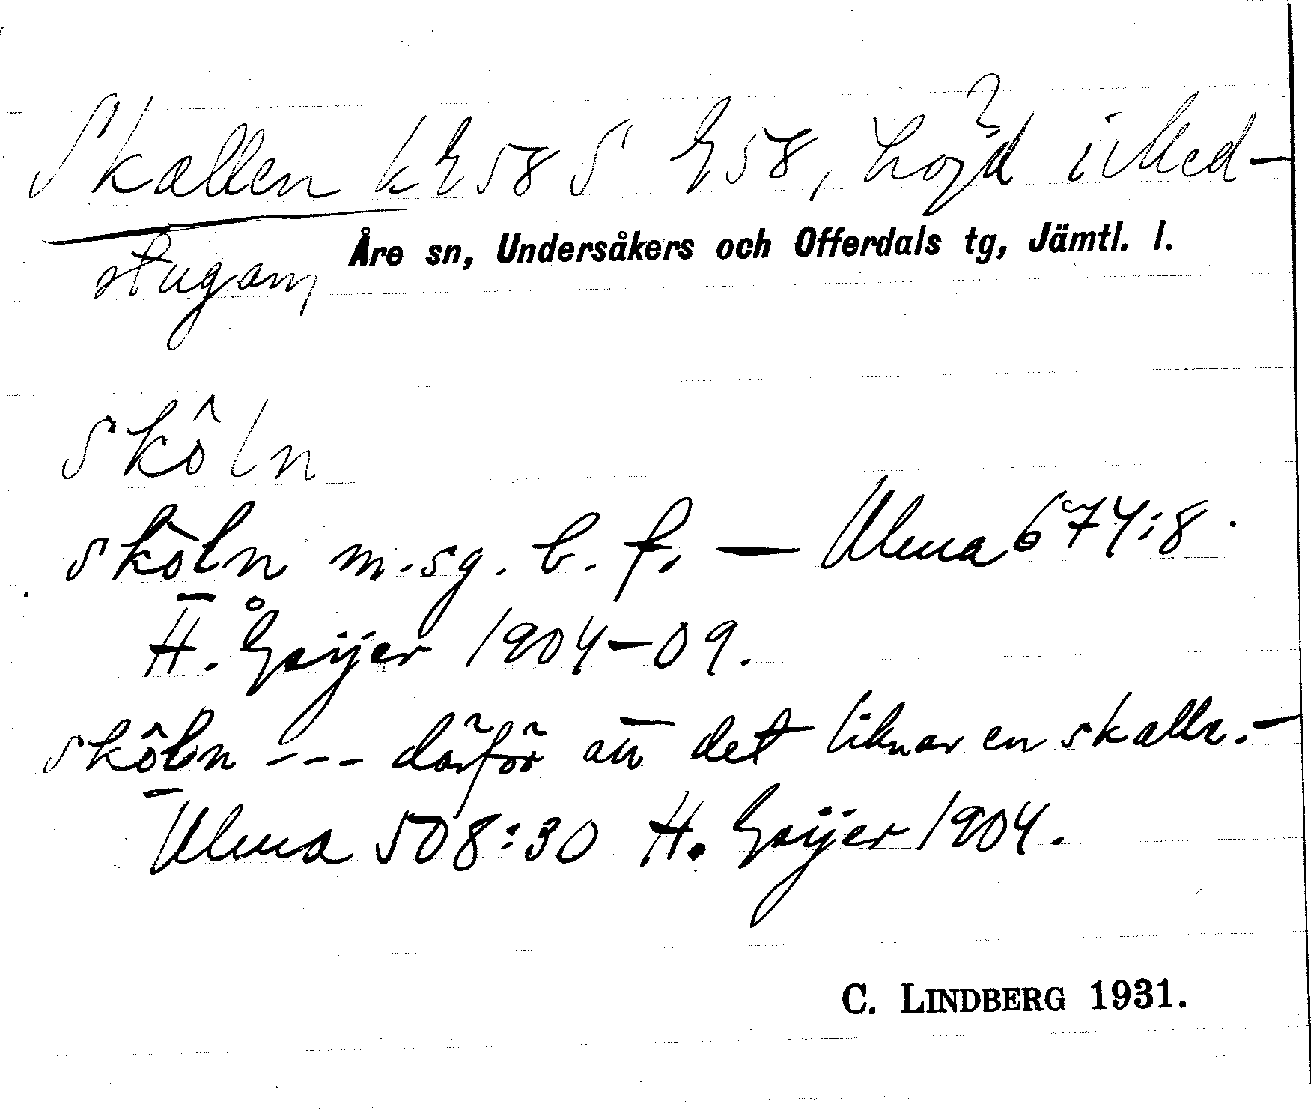 Skallen k E58 S E58, höjd i Med-
stugan,
Åre sn, Undersåkers och Offerdals tg, Jämtl. l.
skôln
skôln m. sg. b. f. — Ulma 674:8.
H. Geijer 1904-09.
skôln --- därför att det liknar en skalle. —
Ulma 508:30 H. Geijer 1904.
C. LINDBERG 1931.